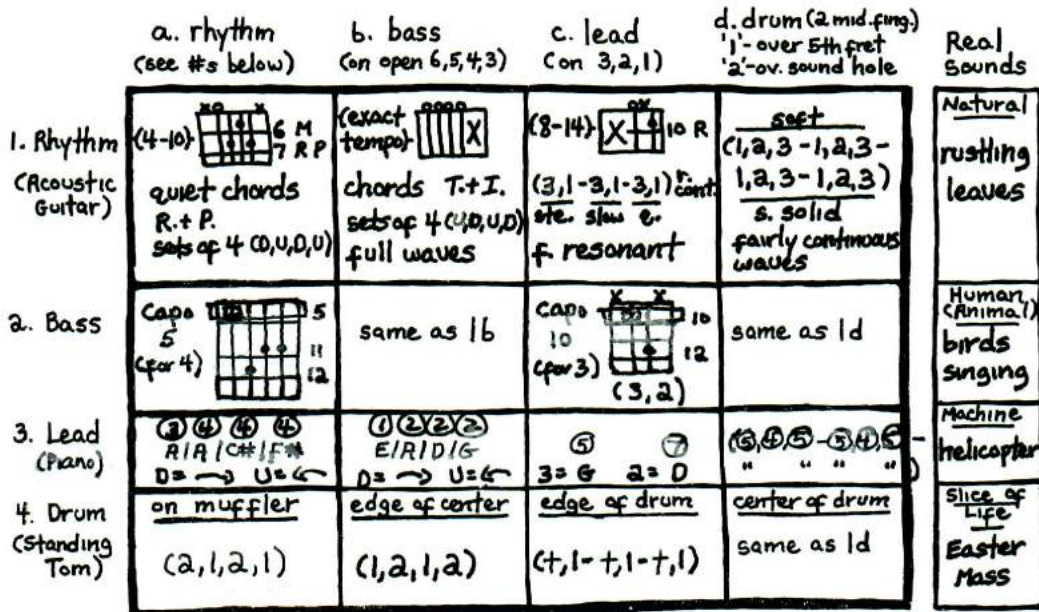 a. rhythm
(see #s below)
b. bass
(on open 6,5,4,3)
c. lead
(on 3,2,1)
d. drum (2 mid.fing.)
'1'-over 5th fret
'2'-ov. sound hole
Real
Sounds
1. Rhythm
(Acoustic
Guitar)
(4-10)
6 M
7 R P
quiet chords
R.+ P.
sets of 4 (D,U,D,U)
(exact
tempo)
X
chords T.+I.
sets of 4 (U,D,U,D)
full waves
(8-14)
X
10 R
(3,1-3,1-3,1) r. cont.
ste. slow e.
f. resonant
soft
(1,2,3-1,2,3-
1,2,3-1,2,3)
s. solid
fairly continuous
waves
Natural
rustling
leaves
2. Bass
Capo
5
(for 4)
5
11
12
same as 1b
Capo
10
(for 3)
10
12
(3,2)
same as 1d
Human
(Animal)
birds
singing
3. Lead
(Piano)
3 4 4 4
A/A/C#/F#
D= → U= ←
1 2 2 2
E/A/D/G
D= → U= ←
5 7
3=G 2=D
(5,4,5-5,4,5-
" " " ")
Machine
helicopter
4. Drum
(Standing
Tom)
on muffler
(2,1,2,1)
edge of center
(1,2,1,2)
edge of drum
(+,1-+,1-+,1)
center of drum
same as 1d
Slice of
Life
Easter
Mass